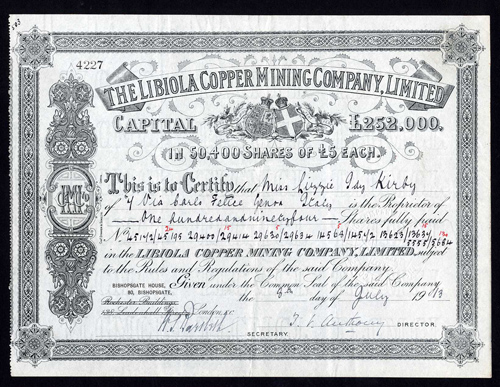 4227
THE LIBIOLA COPPER MINING COMPANY, LIMITED
CAPITAL £252,000.
IN 50,400 SHARES OF £5 EACH.
This is to Certify that Miss Lizzie Idy Kirby
of 7 Via Carlo Felice Genoa Italy is the Proprietor
of One hundred and ninety four Shares fully paid
in the LIBIOLA COPPER MINING COMPANY, LIMITED, subject
to the Rules and Regulations of the said Company
BISHOPSGATE HOUSE,
80, BISHOPSGATE,
Given under the Common Seal of the said Company
Rochester Buildings
London, this 9th day of July 1913
DIRECTOR.
SECRETARY.